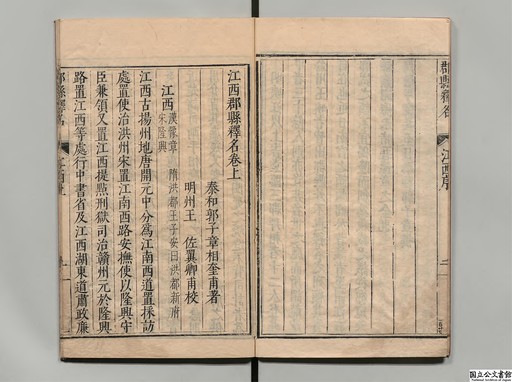 郡縣釋名
江西序
江西郡縣釋名卷上
泰和郭子章相奎甫著
明州王佐翼卿甫校
江西漢豫章隋洪都王子安曰洪都新府
宋隆興
江西古揚州地唐開元中分爲江南西道置採訪
處置使治洪州宋置江南西路安撫使以隆興守
臣兼領又置江西提㸃刑獄司治贛州元於隆興
路置江西等處行中書省及江西湖東道肅政廉
郡縣釋名
江西上
国立公文書館
National Archives of Japan